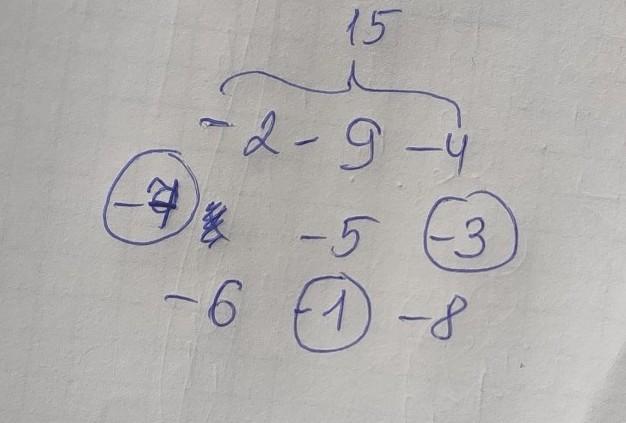 15
-2 - 9 -4
-7 -5 -3
-6 -1 -8